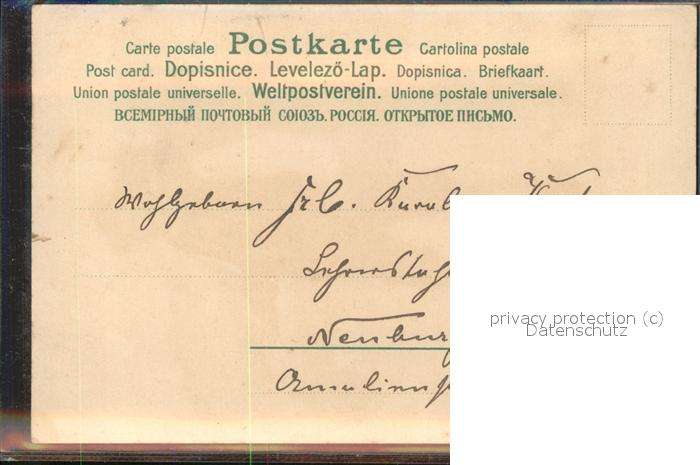 Carte postale Postkarte Cartolina postale
Post card. Dopisnice. Levelező-Lap. Dopisnica. Briefkaart.
Union postale universelle. Weltpostverein. Unione postale universale.
ВСЕМІРНЫЙ ПОЧТОВЫЙ СОЮЗЪ. РОССІЯ. ОТКРЫТОЕ ПИСЬМО.
Wohlgeboren Frl.
Neuburg
privacy protection (c)
Datenschutz